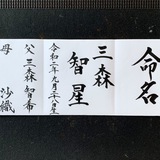 命名
三森
智星
令和二年九月二八日生
父 三森智希
母 沙織